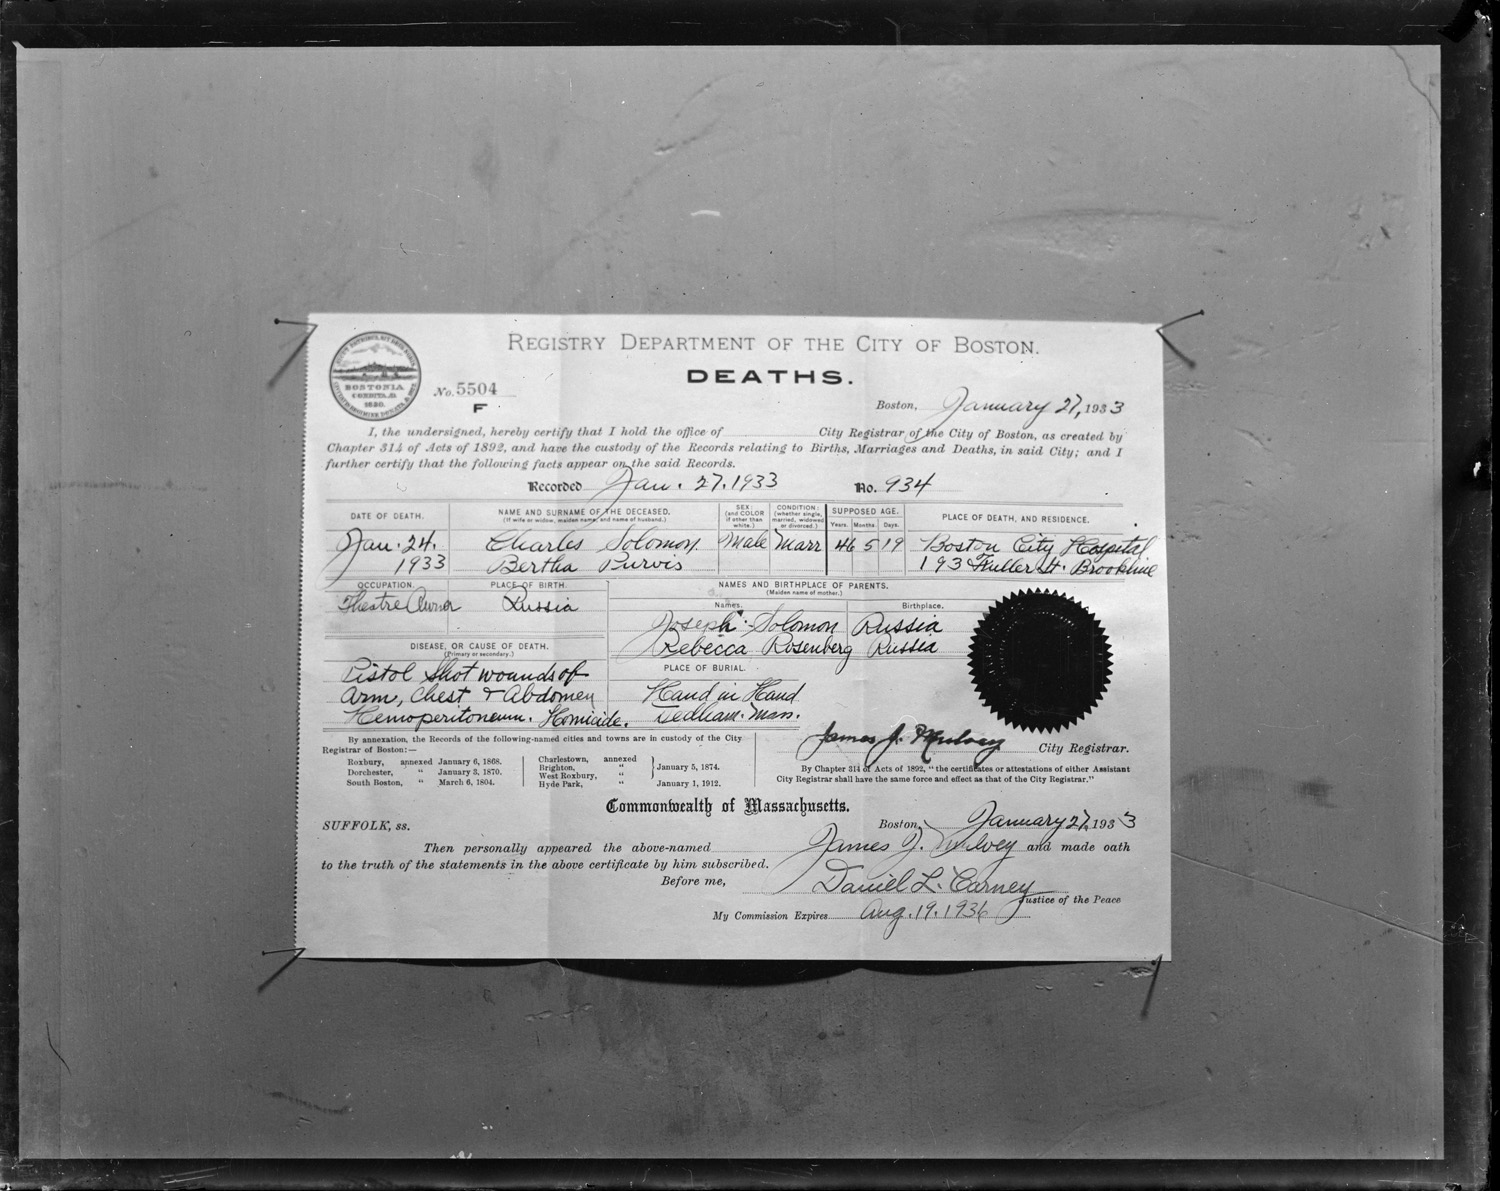 REGISTRY DEPARTMENT OF THE CITY OF BOSTON.
DEATHS.
BOSTONIA
CONDITA A.D.
1630.
No. 5504
F
Boston, January 27, 1933
I, the undersigned, hereby certify that I hold the office of City Registrar of the City of Boston, as created by
Chapter 314 of Acts of 1892, and have the custody of the Records relating to Births, Marriages and Deaths, in said City; and I
further certify that the following facts appear on the said Records.
Recorded Jan. 27. 1933 No. 934
DATE OF DEATH. NAME AND SURNAME OF THE DECEASED. (If wife or widow, maiden name, and name of husband.) SEX: (and COLOR if other than white.) CONDITION: (whether single, married, widowed or divorced.) SUPPOSED AGE. Years. Months Days. PLACE OF DEATH, AND RESIDENCE.
Jan. 24. Charles Solomon. Male Marr 46 5 19 Boston City Hospital
1933 Bertha Purvis 193 Fuller St. Brookline
OCCUPATION. PLACE OF BIRTH. NAMES AND BIRTHPLACE OF PARENTS.
(Maiden name of mother.)
Theatre Owner Russia Names. Birthplace.
Joseph Solomon Russia
Rebecca Rosenberg Russia
DISEASE, OR CAUSE OF DEATH.
(Primary or secondary.)
PLACE OF BURIAL.
Pistol Shot wounds of
arm, Chest + Abdomen Hand in Hand
Hemoperitoneum. Homicide. Dedham. Mass.
James J. Mulvey City Registrar.
By annexation, the Records of the following-named cities and towns are in custody of the City
Registrar of Boston:—
Roxbury, annexed January 6, 1868. Charlestown, annexed
Dorchester, " January 3, 1870. Brighton, " January 5, 1874.
South Boston, " March 6, 1804. West Roxbury, "
Hyde Park, " January 1, 1912.
By Chapter 314 of Acts of 1892, "the certificates or attestations of either Assistant
City Registrar shall have the same force and effect as that of the City Registrar."
Commonwealth of Massachusetts.
SUFFOLK, ss. Boston, January 27, 1933
Then personally appeared the above-named James J. Mulvey and made oath
to the truth of the statements in the above certificate by him subscribed.
Before me, Daniel L. Carney
Justice of the Peace
My Commission Expires Aug. 19. 1936